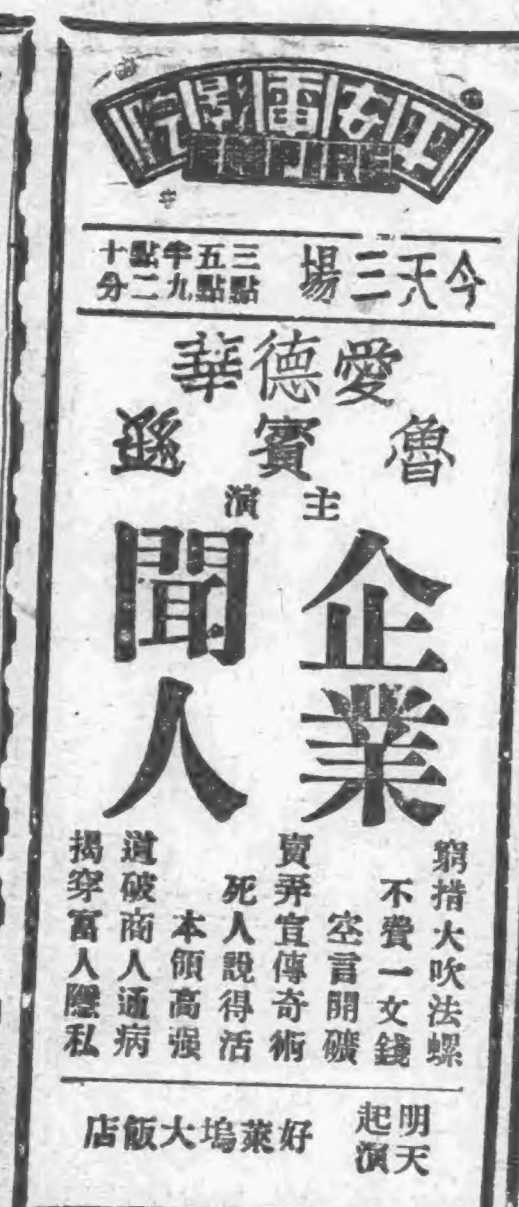 平安電影院
EMPIRE
今天三場
三點五點半九點二十分
愛德華
魯賓遜
主演
企業
聞人
窮措大吹法螺
不費一文錢
空言開礦
賣弄宣傳奇術
死人說得活
本領高强
道破商人通病
揭穿富人隱私
明天
起演
好萊塢大飯店